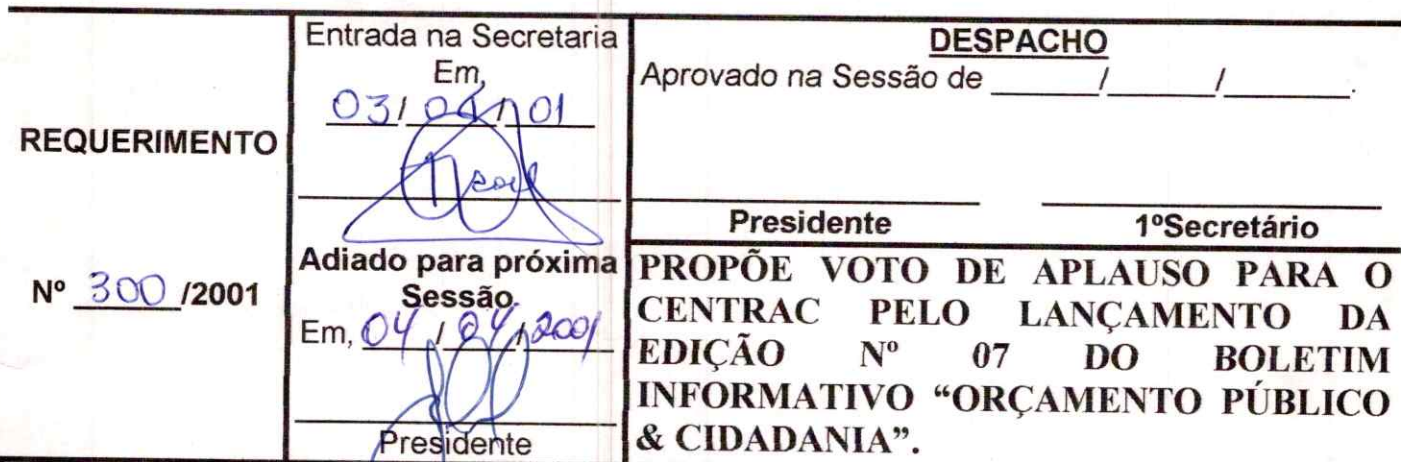 REQUERIMENTO
Nº 300 /2001
Entrada na Secretaria
Em,
03/04/01
Adiado para próxima
Sessão.
Em, 04/04/2001
Presidente
DESPACHO
Aprovado na Sessão de ______/______/_______.
Presidente 1ºSecretário
PROPÕE VOTO DE APLAUSO PARA O
CENTRAC PELO LANÇAMENTO DA
EDIÇÃO Nº 07 DO BOLETIM
INFORMATIVO “ORÇAMENTO PÚBLICO
& CIDADANIA”.